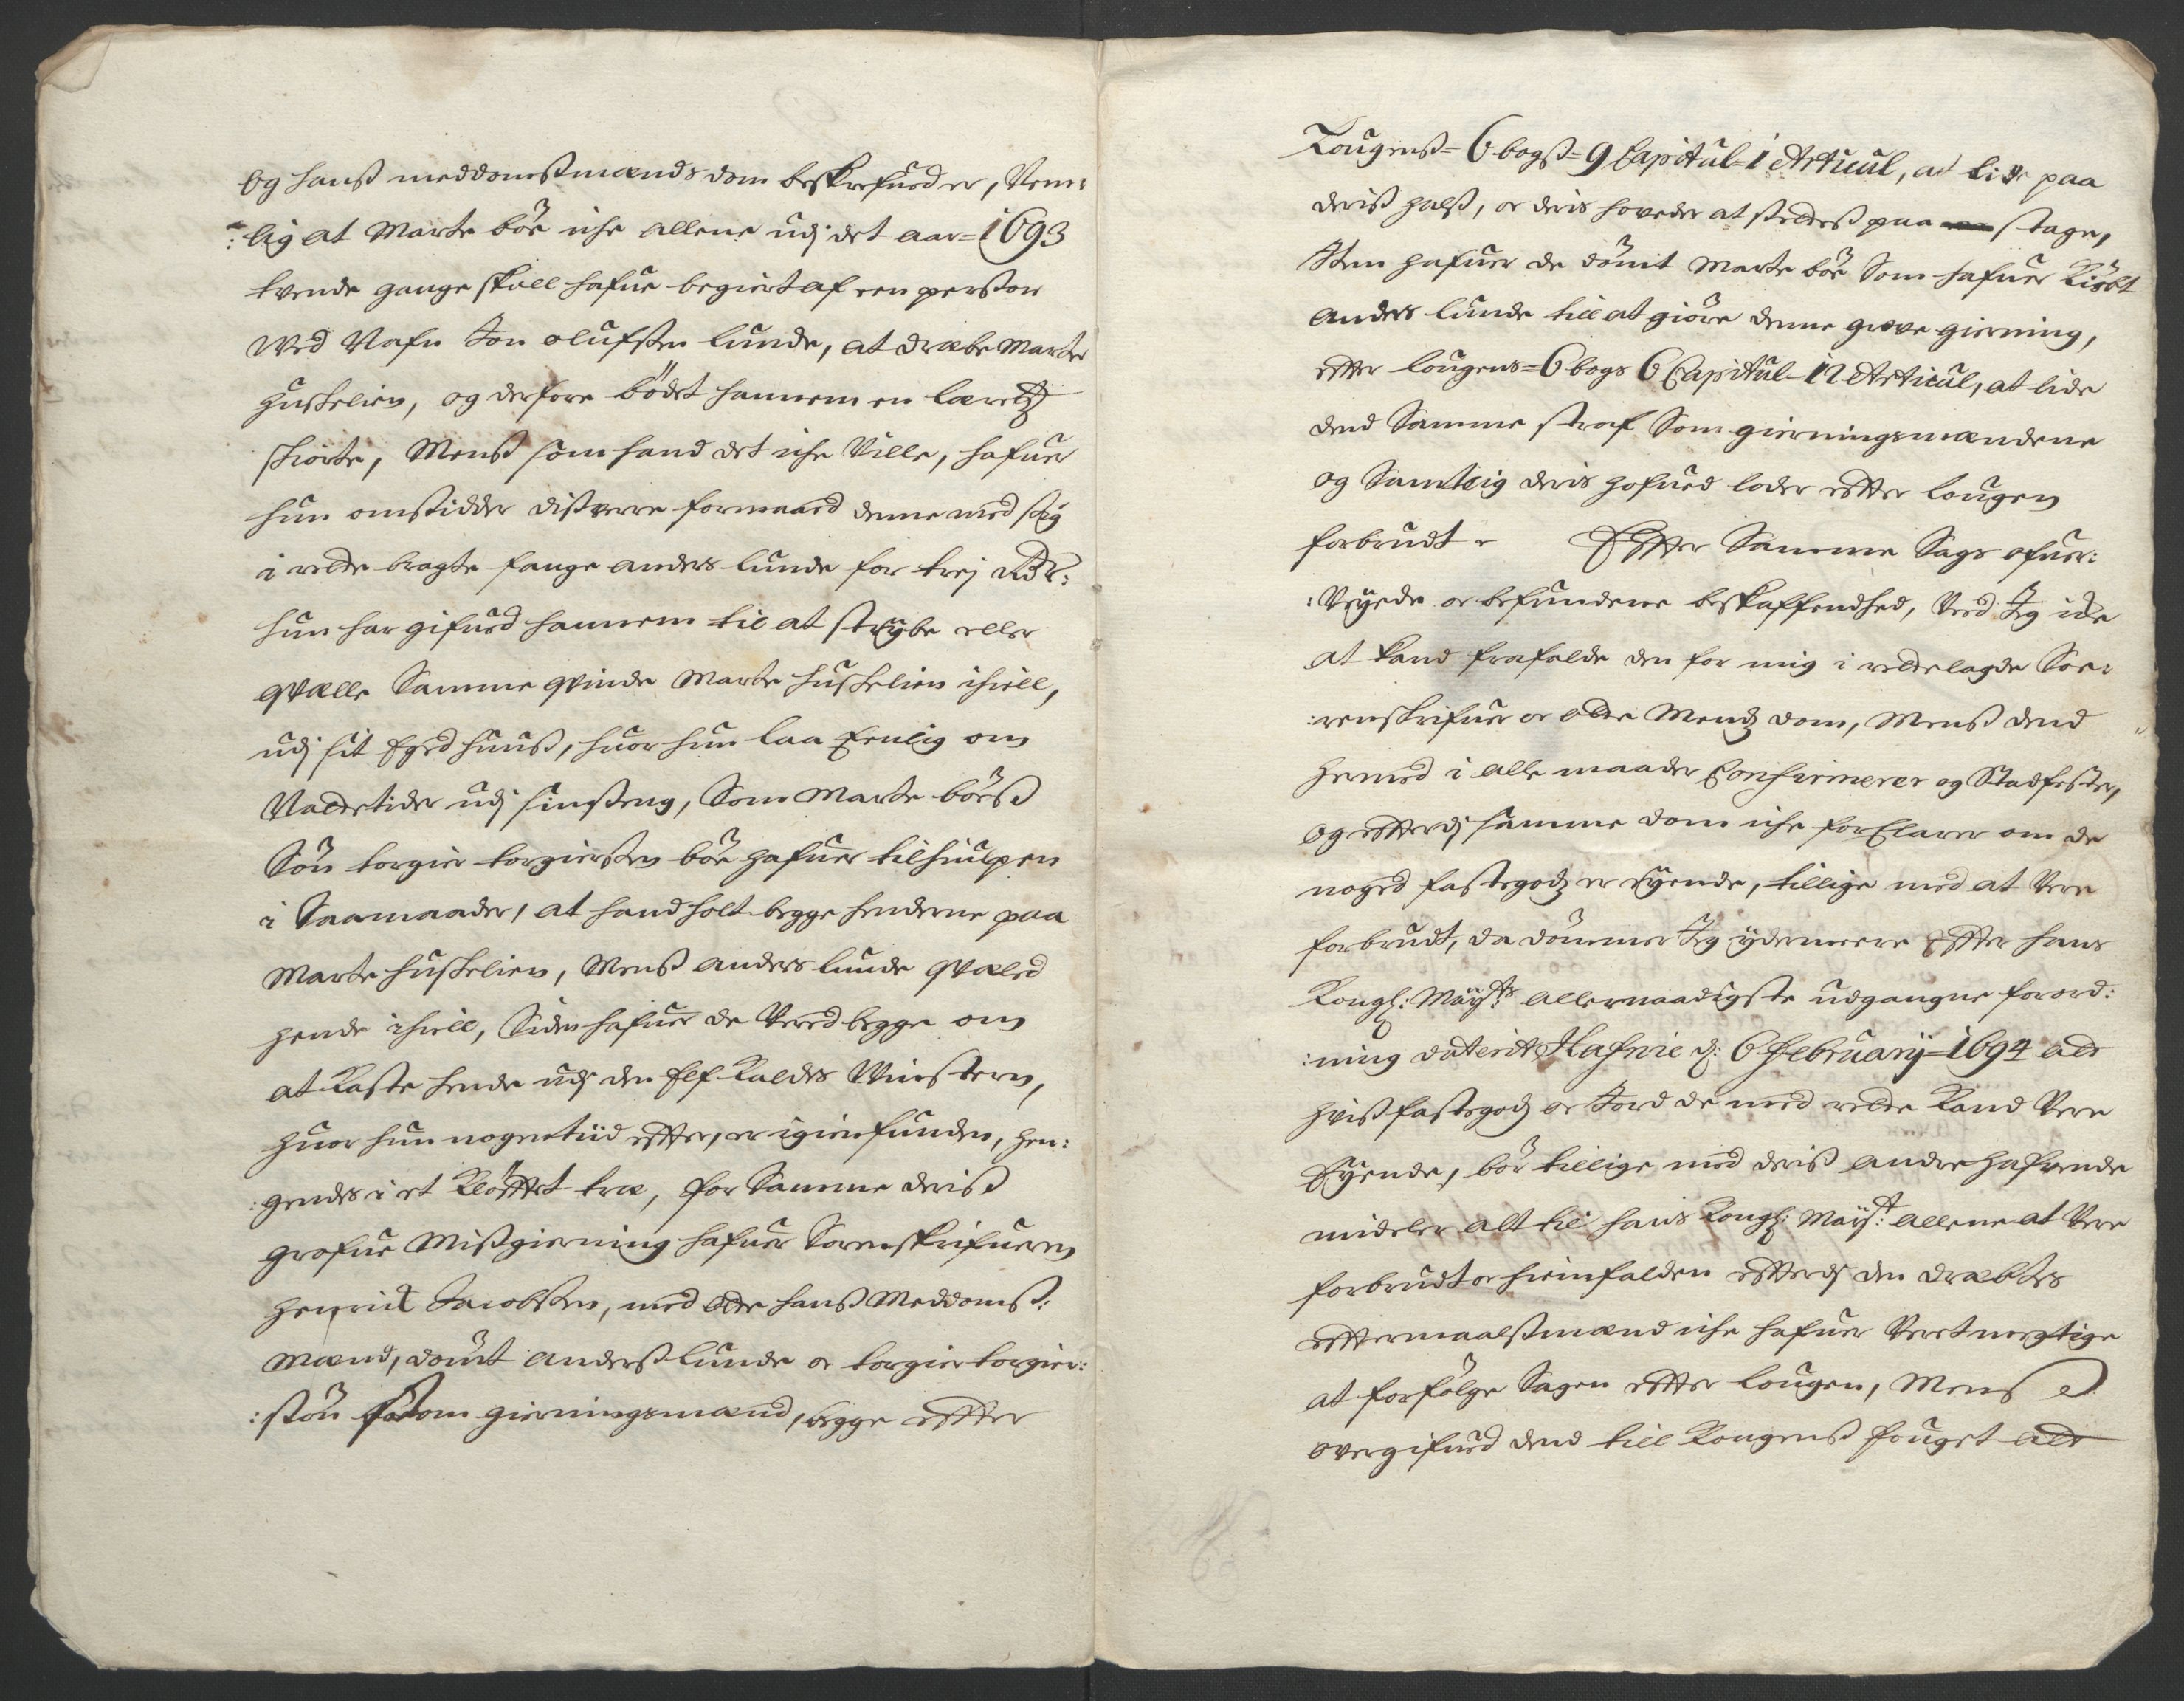 og hanß meddomßmænds dom beskrefued er, Nem:
:lig at Marte böe iche allene udj det aar=1693
tvende gange skall hafue begiert af een perßon
Wed Nafn Jon olufßen Lunde, at dræbe Marte
huskelien, og derfore bödet hannem en lærets
skiorte, Menß som hand det iche Ville, hafuer
hun omsidder dißverre formaaed denne med sig
i rette bragte fange anders Lunde for trej Rdr:
hun har gifued hannem til at strybe eller
qvælle Samme qvinde Marte huskelien ihiell,
udj sit Eged huuß, huor hun laa Eenlig om
Nattetider udj sin seng, Som Marte böeß
Sön torgier torgiersen böe hafuer tilhiulpen
i Saamaader, at hand holt begge henderne paa
Marte huskelien, Menß anders Lunde qvæled
hende ihiell, Siden hafuer de Vered begge om
at Kaste hende udj den Elf Kaldes Winstern,
huor hun nogen tiid effter, er igienfunden, hen:
:gendes i et Klöfftet træ, for Samme deriß
grofue Mißgierning hafuer Sorenskrifueren
Henrick Jacobsen, med otte hanß Meddomß:
mænd, dömt anderß Lunde oc torgier torgier:
:sön som gierningsmænd, begge effter
Lougenß= 6 bogß= 9 Capitul= 1 Articul, at lide paa
deriß halß, oc deris hoveder at settes paa stage,
Item hafuer de dömt Marte böe Som hafuer Kiöbt
anders Lunde till at giöre denne grove gierning,
effter lougens= 6 bogs 6 Capitul= 12 Articul, at lide
dend Samme straf Som gierningsmændene
og Samtlig deris hofued loder effter lougen
forbrudt Effter Samme Sags ofuer:
:Veyede oc befundene beskaffendhed, Veed Jeg icke
at kand frafalde den for mig i rettelagde Soe:
:renskrifuer oc otte Mends dom, Menß dend
hermed i alle maader Confirmerer og Stadfester,
og effterdj samme dom iche forklarer om de
noged fastegods er Eyende, tillige med at Vere
forbrudt, da dömmer Jeg ydermeere Effter hans
Kongl: Mayts: allernaadigste udgangne forord:
:ning daterit Hafnie d: 6 February= 1694 alt
hvis fastegods oc Jord de med rette Kand Vere
Eyende, bör tillige med deriß andre hafvende
mideler alt til hans Kongl: Mayt: allene at Vere
forbrudt oc hiemfalden effterdj den dræbtes
efftermaalßmænd iche hafuer Veret megtige
at forfölge Sagen effter lougen, Menß
overgifued dend till Kongenß fouget alt